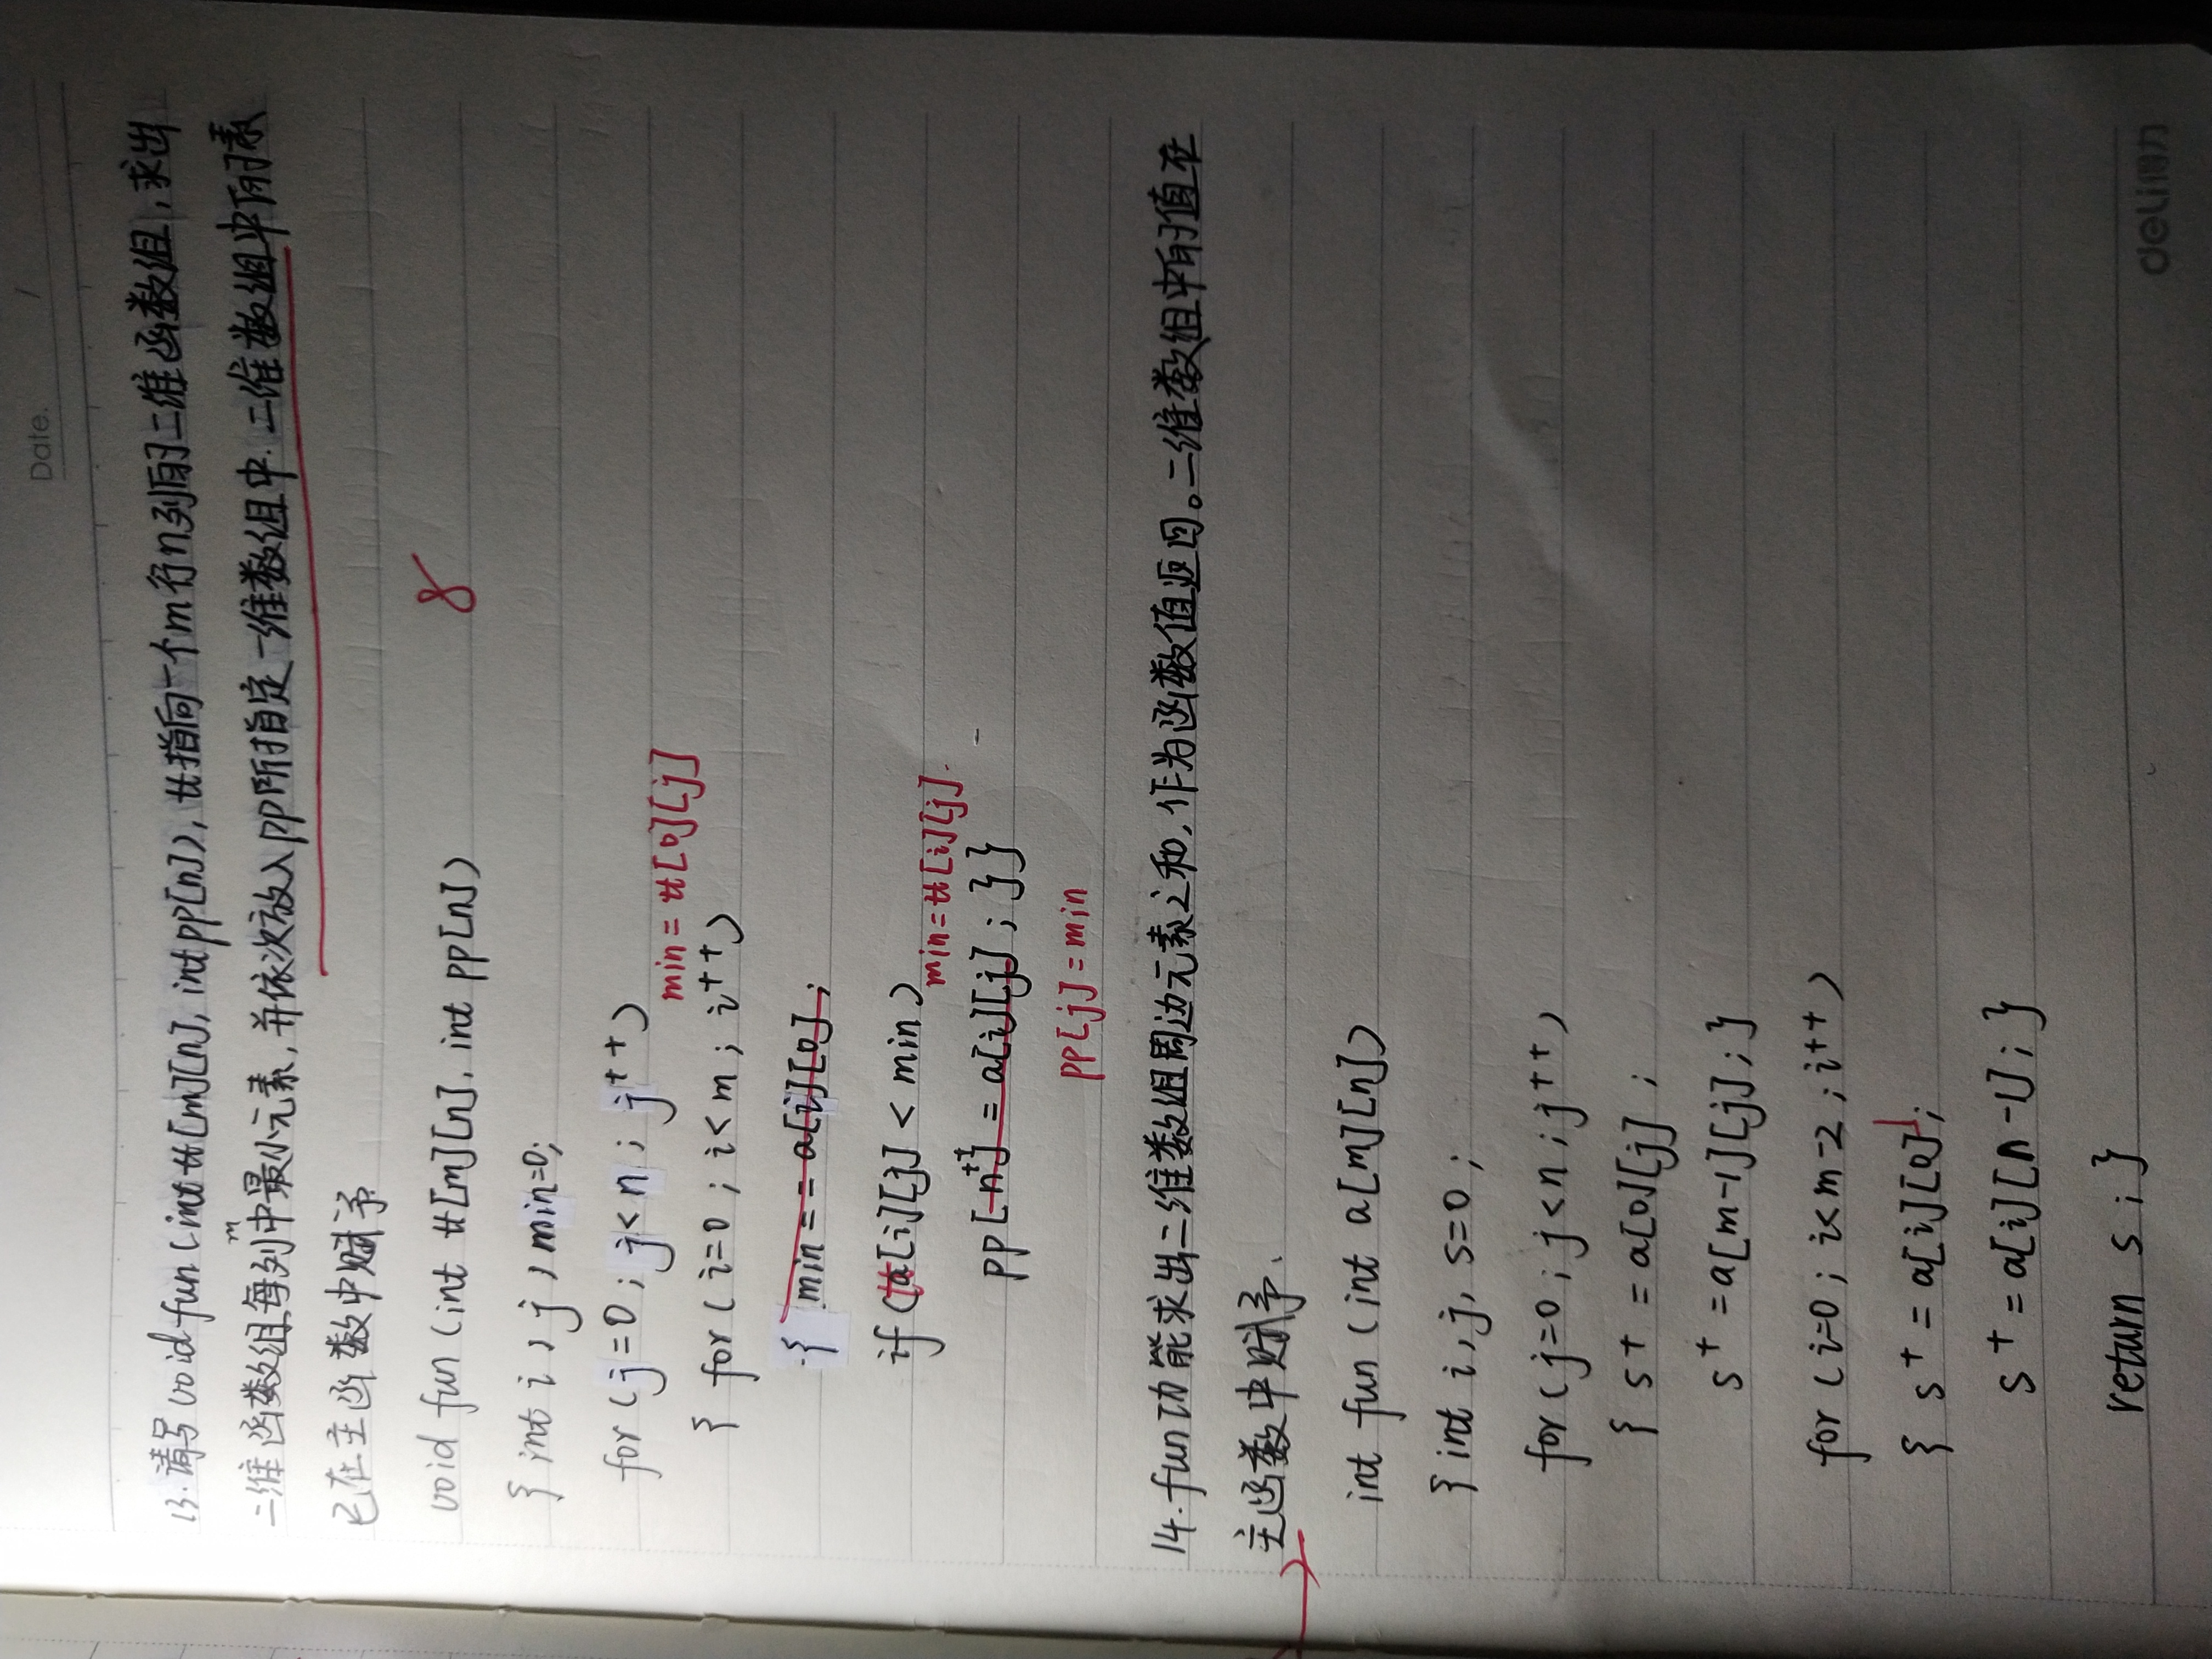 Date. /
13.请写 void fun (int tt[m][n], int pp[n]), tt指向一个m行n列的二维函数组,求出
二维函数组每列中最小元素,并依次放入pp所指定一维数组中.二维数组中的元素
已在主函数中赋予
8
void fun (int tt[m][n], int pp[n])
{ int i, j, min=0;
for (j=0; j<n; j++)
min = tt[0][j]
{ for (i=0; i<m; i++)
{ min = = a[i][0];
if (tt[i][j] < min)
min=tt[i][j].
pp[n++] = a[i][j]; }}
pp[j] = min
14.fun功能求出二维数组周边元素之和,作为函数值返回。二维数组中的值在
主函数中赋予.
int fun (int a[m][n])
{ int i, j, s=0;
for (j=0; j<n; j++)
{ s+ = a[0][j];
s+ = a[m-1][j]; }
for (i=0; i<m-2; i++)
{ s+ = a[i][0];
s+ = a[i][n-1]; }
return s; }
deli得力